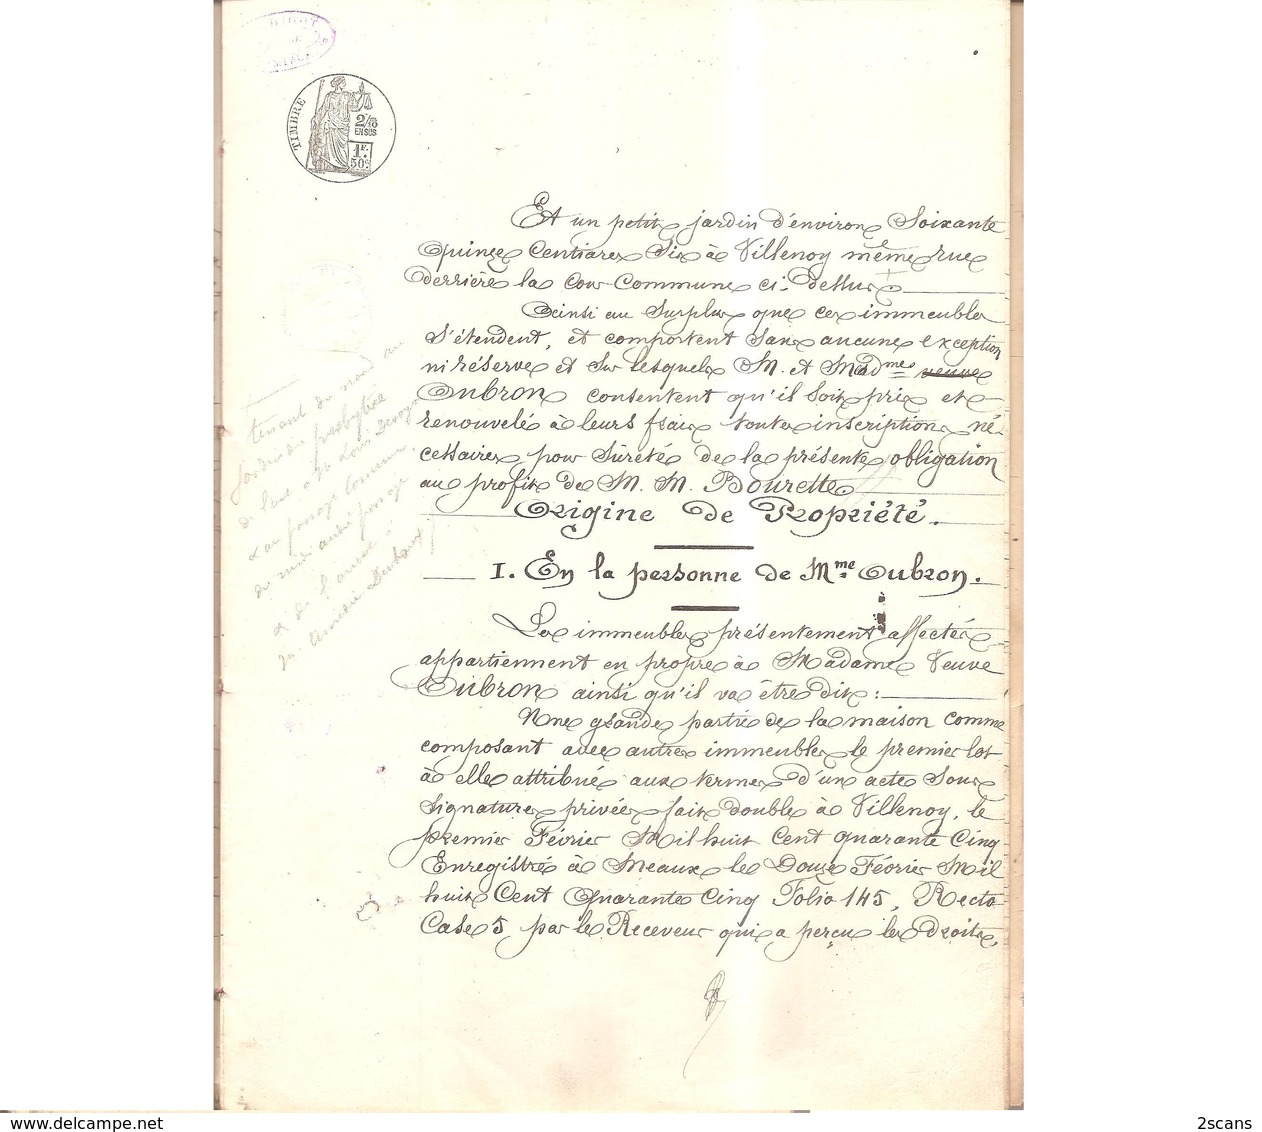 TIMBRE
2/10
EN SUS
1F.
50c.
Et un petit jardin d'environ Soixante
quinze Centiares Sis à Villenoy même rue
derrière la Cour Commune ci-dessus
Ainsi au Surplus que ces immeubles
S'étendent, et comportent Sans aucune exception
ni réserve et Sur lesquels M. et Madme veuve
Oubron consentent qu'il Soit pris et
renouvelé à leurs frais toutes inscriptions né-
cessaires pour Sûreté de la présente obligation
au profit de M. M. Bourette
Origine de Propriété.
I. En la personne de Mme Oubron.
Les immeubles présentement affectés
appartiennent en propre à Madame Veuve
Oubron ainsi qu'il va être dit :
Une grande partie de la maison comme
composant avec autres immeubles le premier lot
à elle attribué aux termes d'un acte Sous
Signatures privées fait double à Villenoy, le
premier Février Mil huit Cent quarante Cinq
Enregistré à Meaux le Douze Février Mil
huit Cent Quarante Cinq Folio 145, Recto
Case 5 par le Receveur qui a perçu les Droits.
tenant du nord au
jardin du presbytère
de l'est à M. Louis
au passage Commun
du midi audit passage
& de l'ouest à
2scans